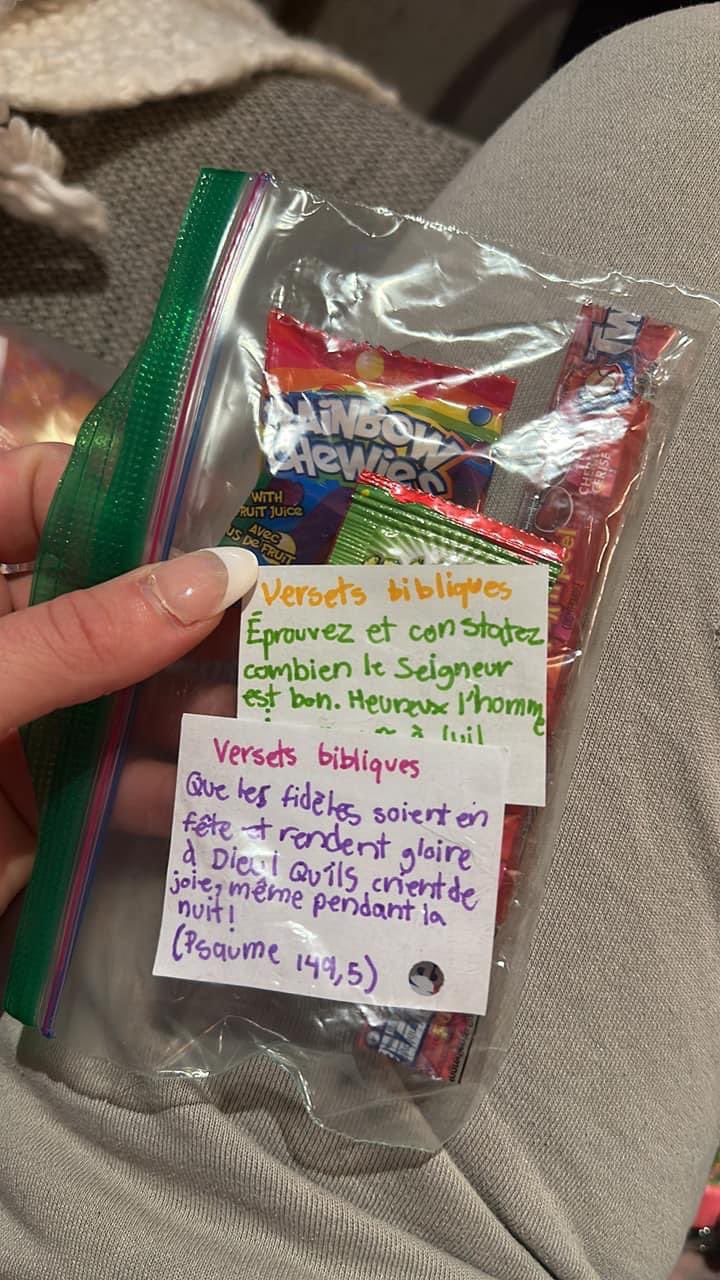 RAINBOW
CHEWIES
WITH
FRUIT JUICE
AVEC
JUS DE FRUIT
CERISE
Versets bibliques
Éprouvez et constatez
combien le Seigneur
est bon. Heureux l'homme
à lui!
Versets bibliques
Que les fidèles soient en
fête et rendent gloire
à Dieu! Qu'ils crient de
joie, même pendant la
nuit!
(Psaume 149,5)